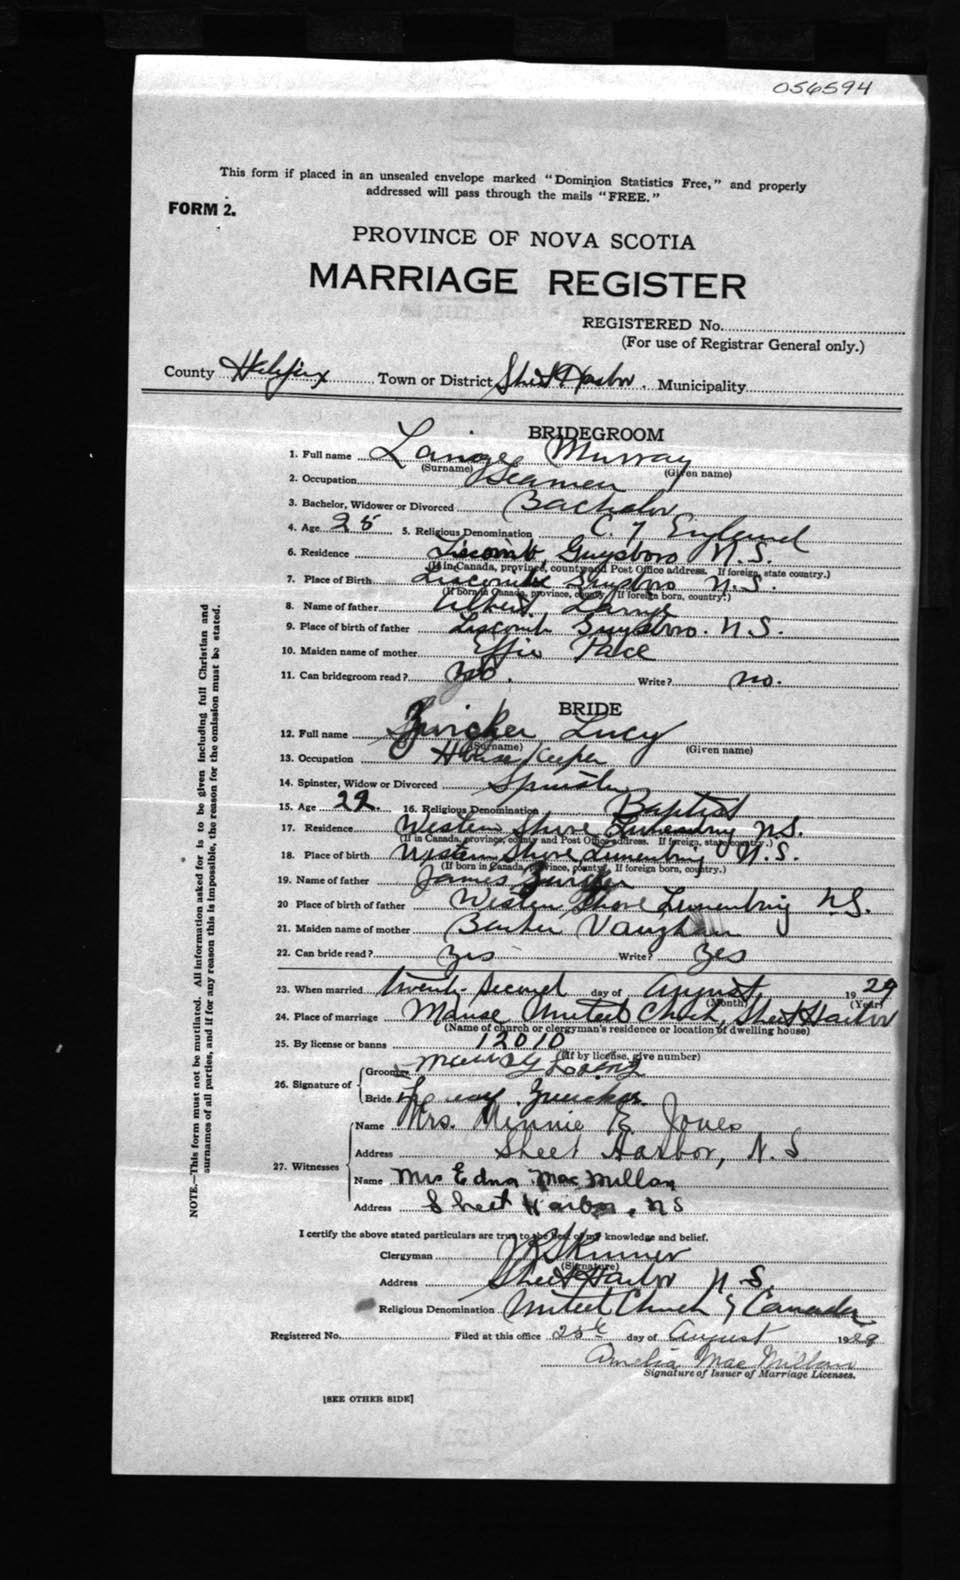 056594
This form if placed in an unsealed envelope marked "Dominion Statistics Free," and properly
addressed will pass through the mails "FREE."
FORM 2.
PROVINCE OF NOVA SCOTIA
MARRIAGE REGISTER
REGISTERED No.
(For use of Registrar General only.)
County Halifax Town or District Sheet Harbor. Municipality
BRIDEGROOM
1. Full name Murray
(Surname) (Given name)
2. Occupation Seamen
3. Bachelor, Widower or Divorced Bachelor
4. Age 25 5. Religious Denomination C. of England
6. Residence Liscomb, Guysboro N.S.
(If in Canada, province, county and Post Office address. If foreign, state country.)
7. Place of Birth Liscombe Guysboro N.S.
(If born in Canada, province, county. If foreign born, country.)
8. Name of father Albert
9. Place of birth of father Liscomb Guysboro. N.S.
10. Maiden name of mother Effie
11. Can bridegroom read? Write? no.
BRIDE
12. Full name Zwicker Lucy
(Surname) (Given name)
13. Occupation House Keeper
14. Spinster, Widow or Divorced Spinster
15. Age 22. 16. Religious Denomination Baptist
17. Residence Western Shore Lunenburg N.S.
(If in Canada, province, county and Post Office address. If foreign, state country.)
18. Place of birth Western Shore Lunenburg N.S.
(If born in Canada, province, county. If foreign born, country.)
19. Name of father James Zwicker
20 Place of birth of father Western Shore Lunenburg N.S.
21. Maiden name of mother Vaughan
22. Can bride read? Yes Write? Yes
23. When married twenty-second day of August, 1929
(Month) (Year)
24. Place of marriage Manse United Church, Sheet Harbor
(Name of church or clergyman's residence or location of dwelling house)
25. By license or banns 12010
(If by license, give number)
26. Signature of
Groom
Bride Zwicker.
27. Witnesses
Name Mrs. Minnie E. Jones
Address Sheet Harbor, N.S
Name Mrs Edna MacMillan
Address Sheet Harbor, NS
I certify the above stated particulars are true to the best of my knowledge and belief.
Clergyman Skinner
(Signature)
Address Sheet Harbor N.S.
Religious Denomination United Church of Canada
Registered No. Filed at this office 25th day of August 1929
Amelia MacMillan
Signature of Issuer of Marriage Licenses.
[SEE OTHER SIDE]
NOTE.—This form must not be mutilated. All information asked for is to be given including full Christian and
surnames of all parties, and if for any reason this is impossible, the reason for the omission must be stated.